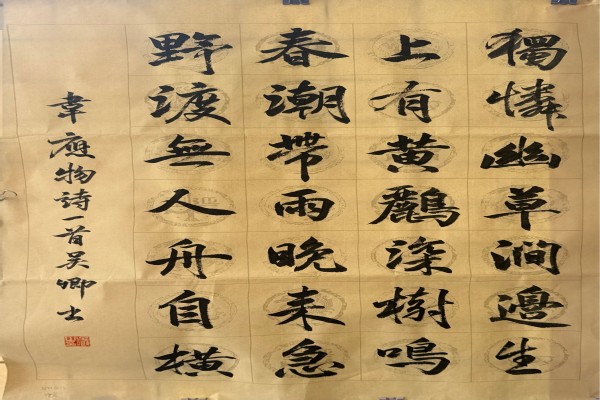 獨憐幽草澗邊生
上有黄鸝深樹鳴
春潮帶雨晚来急
野渡無人舟自横
韋應物詩一首吴卿书